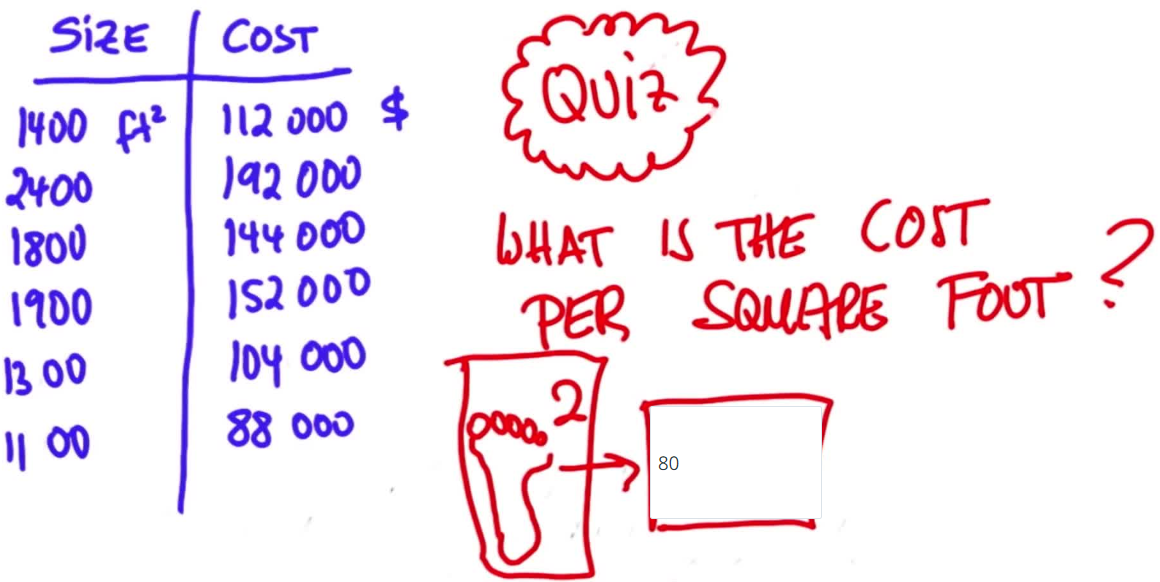 SiZE COST
1400 ft² 112 000 $
2400 192 000
1800 144 000
1900 152 000
1300 104 000
1100 88 000
QUiZ
WHAT IS THE COST
PER SQUARE FOOT?
2
80